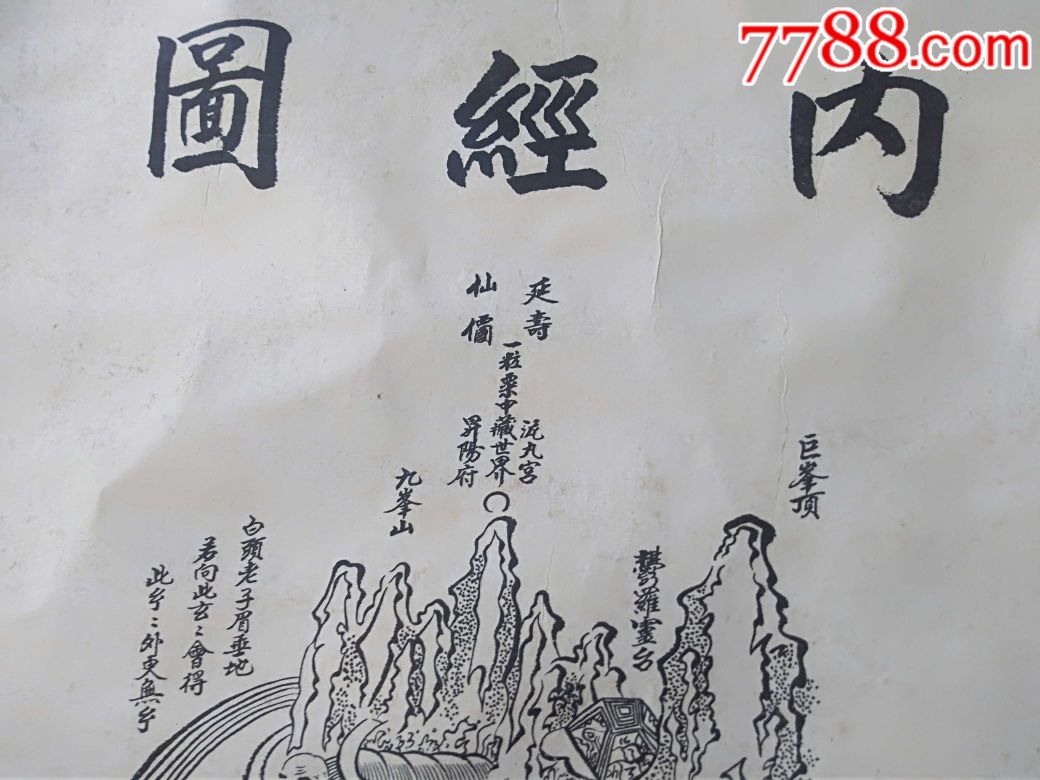 7788.com
内經圖
延壽
仙
一粒粟中藏世界
泥丸宮
昇陽府
巨峯頂
九峯山
鬱羅靈台
白頭老子眉垂地
若向此玄〻會得
此玄〻外更無玄